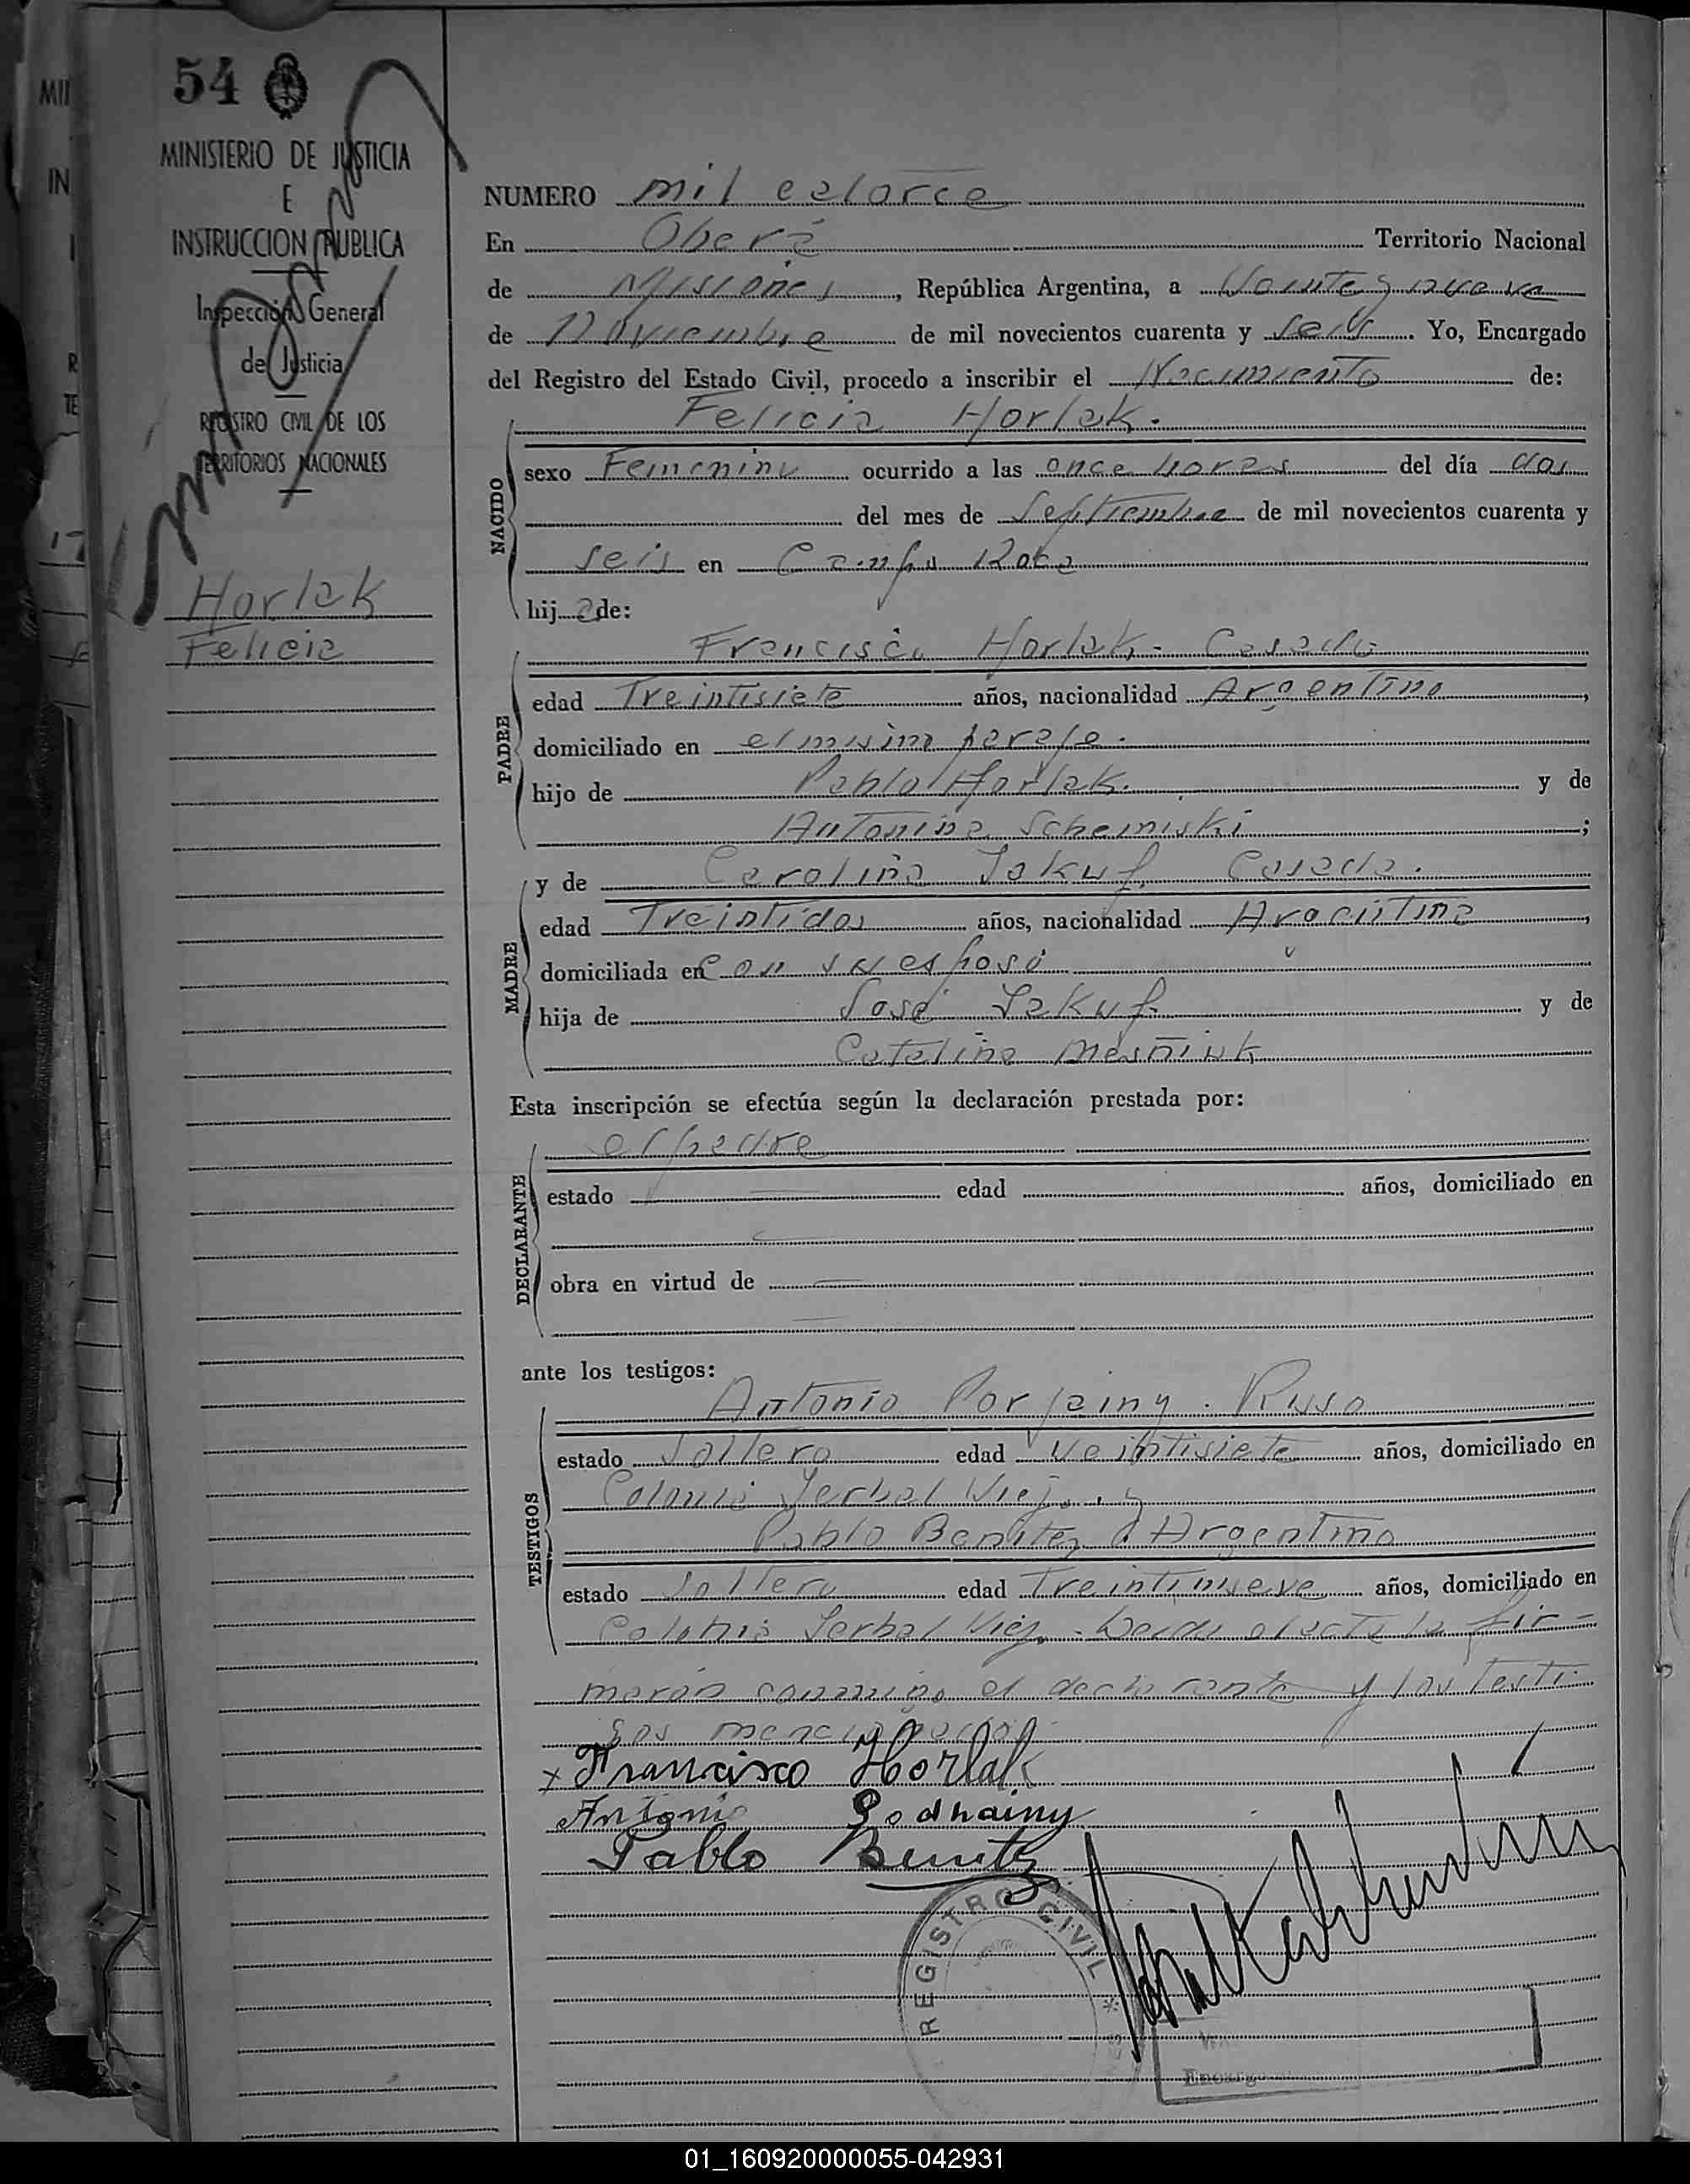 54
MINISTERIO DE JUSTICIA
E
INSTRUCCION PUBLICA
Inspección General
de Justicia
REGISTRO CIVIL DE LOS
TERRITORIOS NACIONALES
Horlak
Felicia
NUMERO mil catorce
En Oberá Territorio Nacional
de Misiones, República Argentina, a Veinte y nueve
de Noviembre de mil novecientos cuarenta y seis. Yo, Encargado
del Registro del Estado Civil, procedo a inscribir el Nacimiento de:
Felicia Horlak.
NACIDO
sexo Femenino ocurrido a las once horas del día dos
del mes de Septiembre de mil novecientos cuarenta y
seis en Campo Roca
hija de:
PADRE
Francisco Horlak - Casado
edad Treintisiete años, nacionalidad Argentino,
domiciliado en el mismo paraje.
hijo de Pablo Horlak. y de
Antonina Schemiski;
MADRE
y de Carolina Jakuf. Casada.
edad Treintidos años, nacionalidad Argentina,
domiciliada en Con su esposo
hija de José Jakuf. y de
Catalina Mesñiuk
Esta inscripción se efectúa según la declaración prestada por:
DECLARANTE
el padre
estado edad años, domiciliado en
obra en virtud de
ante los testigos:
TESTIGOS
Antonio Porjainy. Ruso
estado Soltero edad Veintisiete años, domiciliado en
Colonia Yerbal Viejo. y
Pablo Benitez Argentino
estado Soltero edad Treintinueve años, domiciliado en
Colonia Yerbal Viejo. Leida el acta la fir-
marón conmigo el declarante y los testi-
gos mencionados.
x Francisco Horlak
Antonio Podhainy
Pablo Benitez
REGISTRO CIVIL
Encarg
01_160920000055-042931